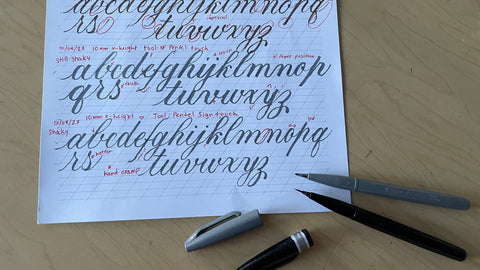 abcdefghijklmnopq
rs tuvwxyz
improved
01/04/23 10mm x-height Tool: Pentel touch
still shaky
abcdefghijklmnop
qrs tuvwxyz
01/04/23 10mm x-height Tool: Pentel Sign touch
shaky
abcdefghijklmnopq
rs better tuvwxyz
hand cramp